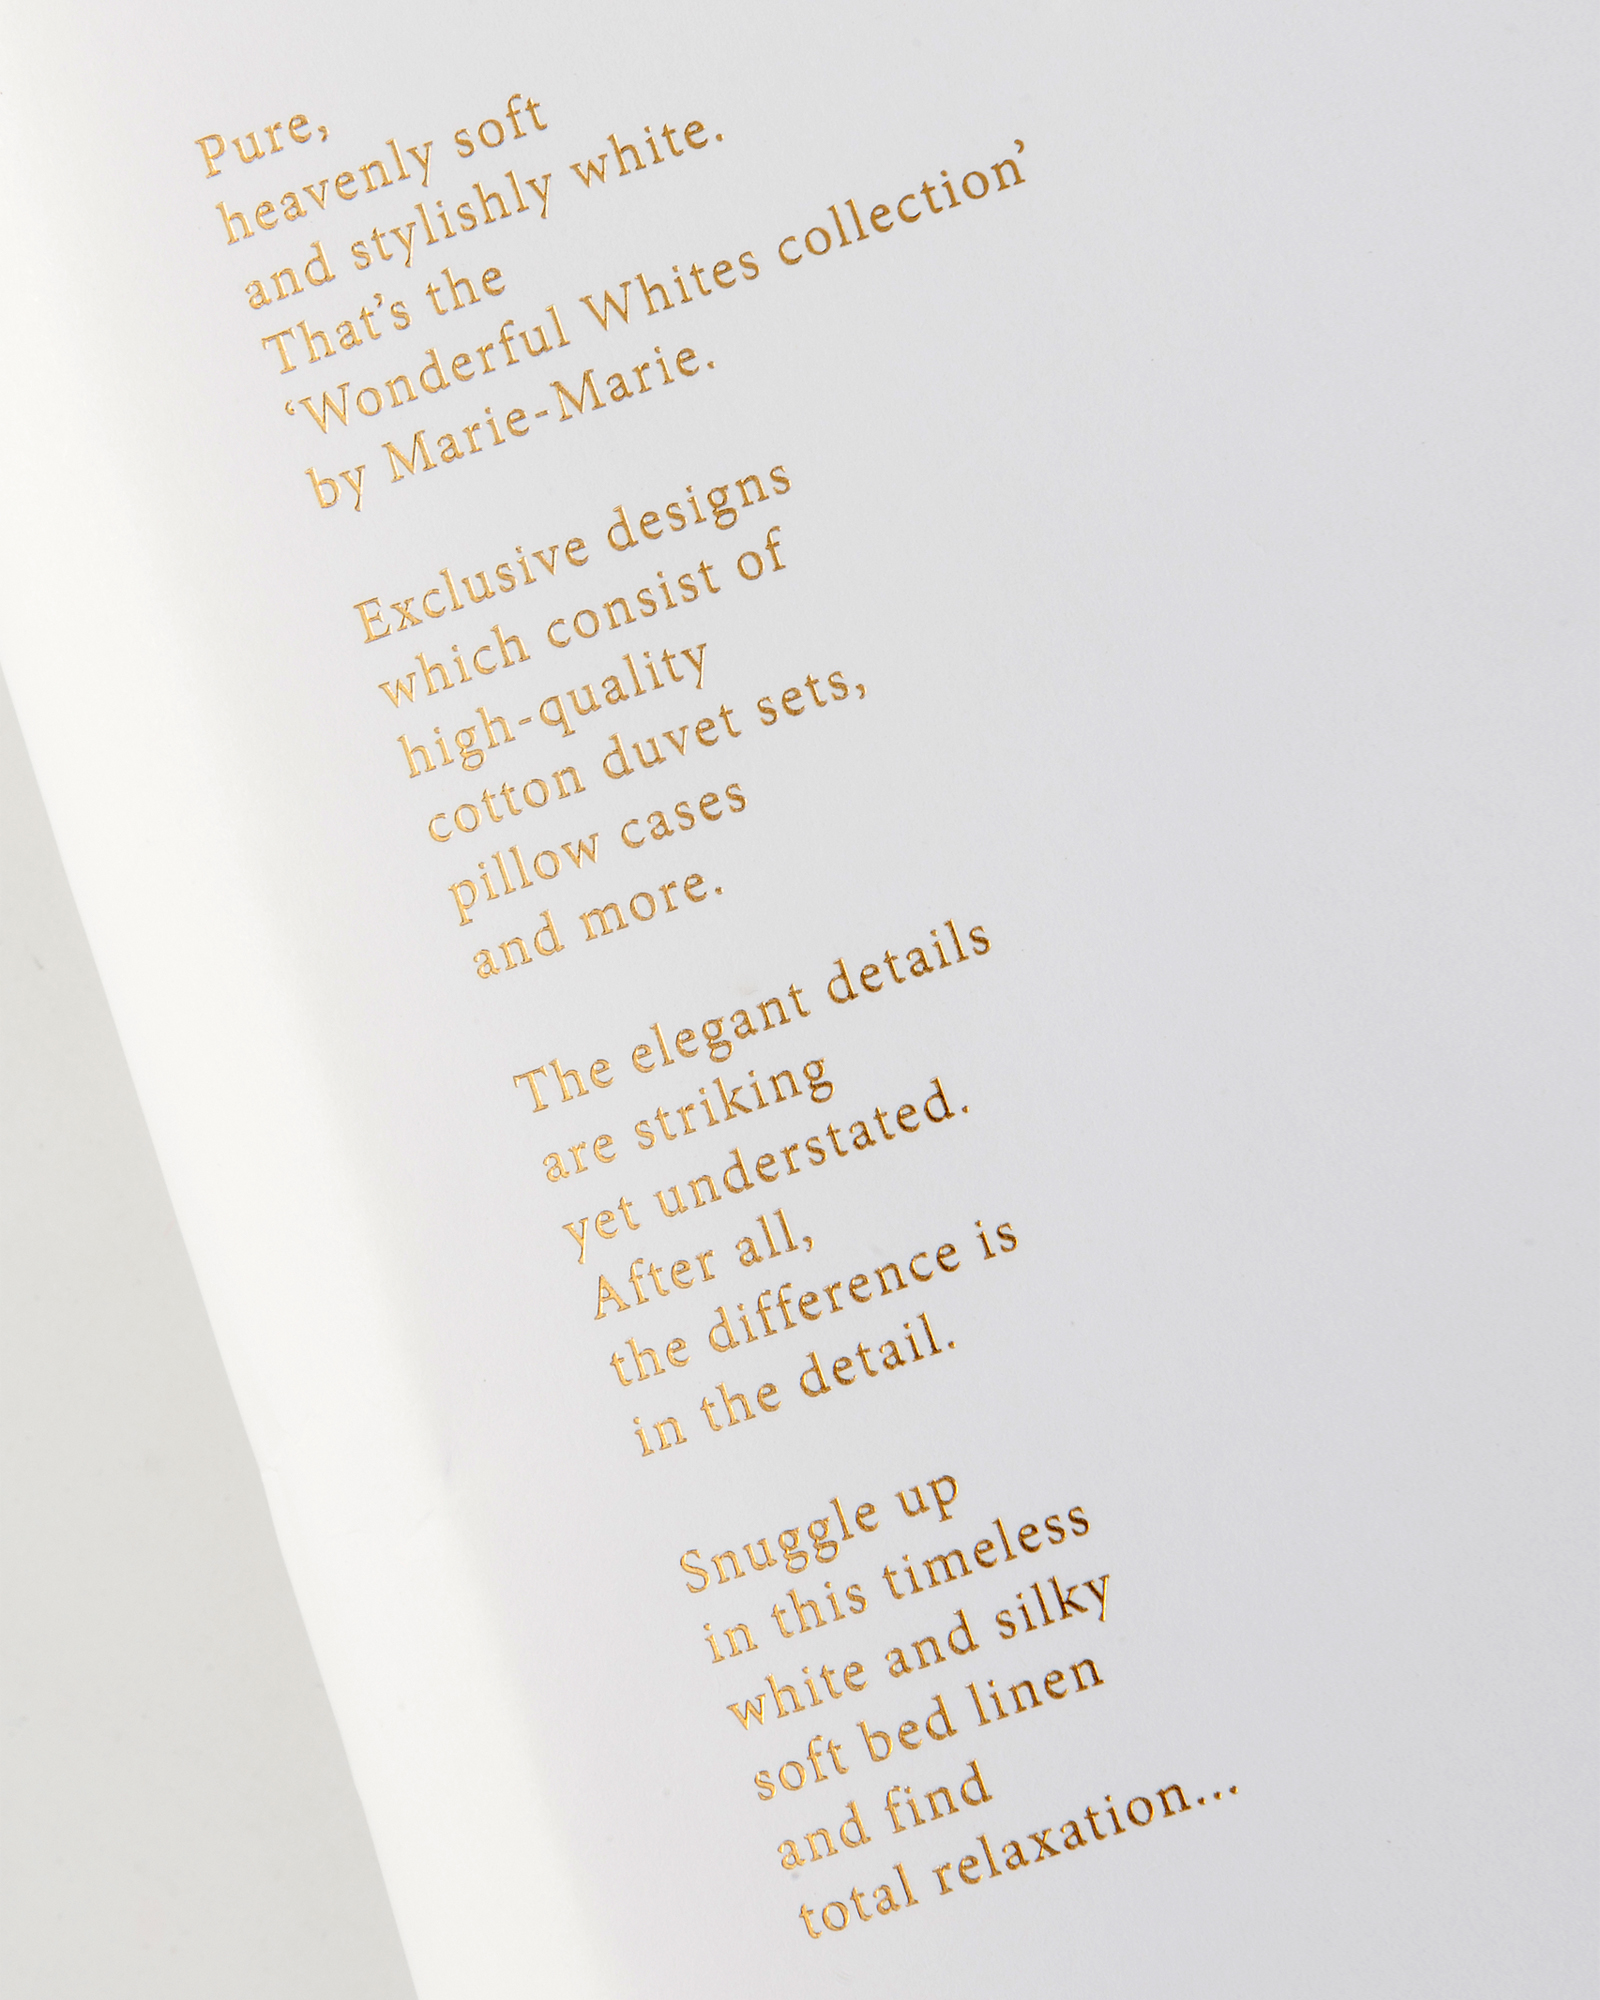 Pure,
heavenly soft
and stylishly white.
That’s the
‘Wonderful Whites collection’
by Marie-Marie.
Exclusive designs
which consist of
high-quality
cotton duvet sets,
pillow cases
and more.
The elegant details
are striking
yet understated.
After all,
the difference is
in the detail.
Snuggle up
in this timeless
white and silky
soft bed linen
and find
total relaxation...